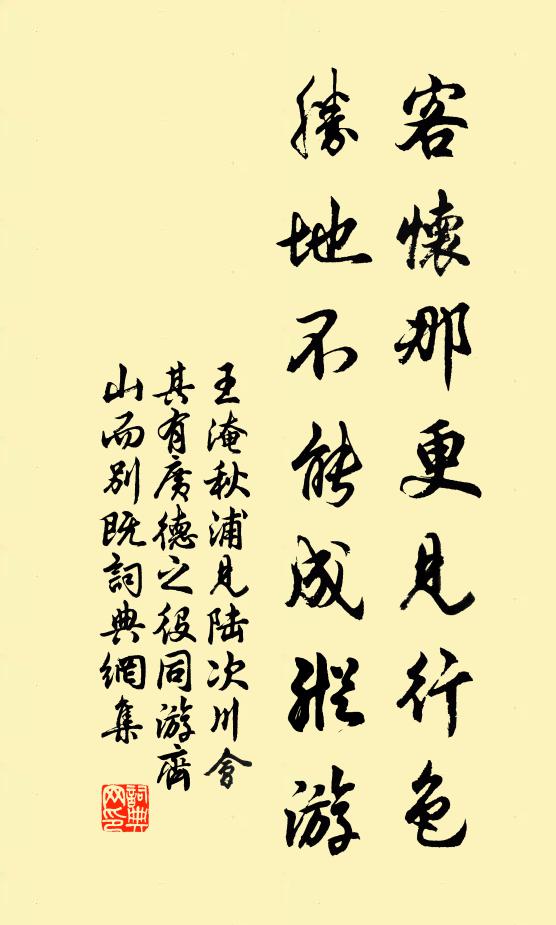 客懷那更見行色
勝地不能成縱游
王淹秋浦見陆次川會
其有廣德之役同游齊
山而别既詞典網集
詞典
网印